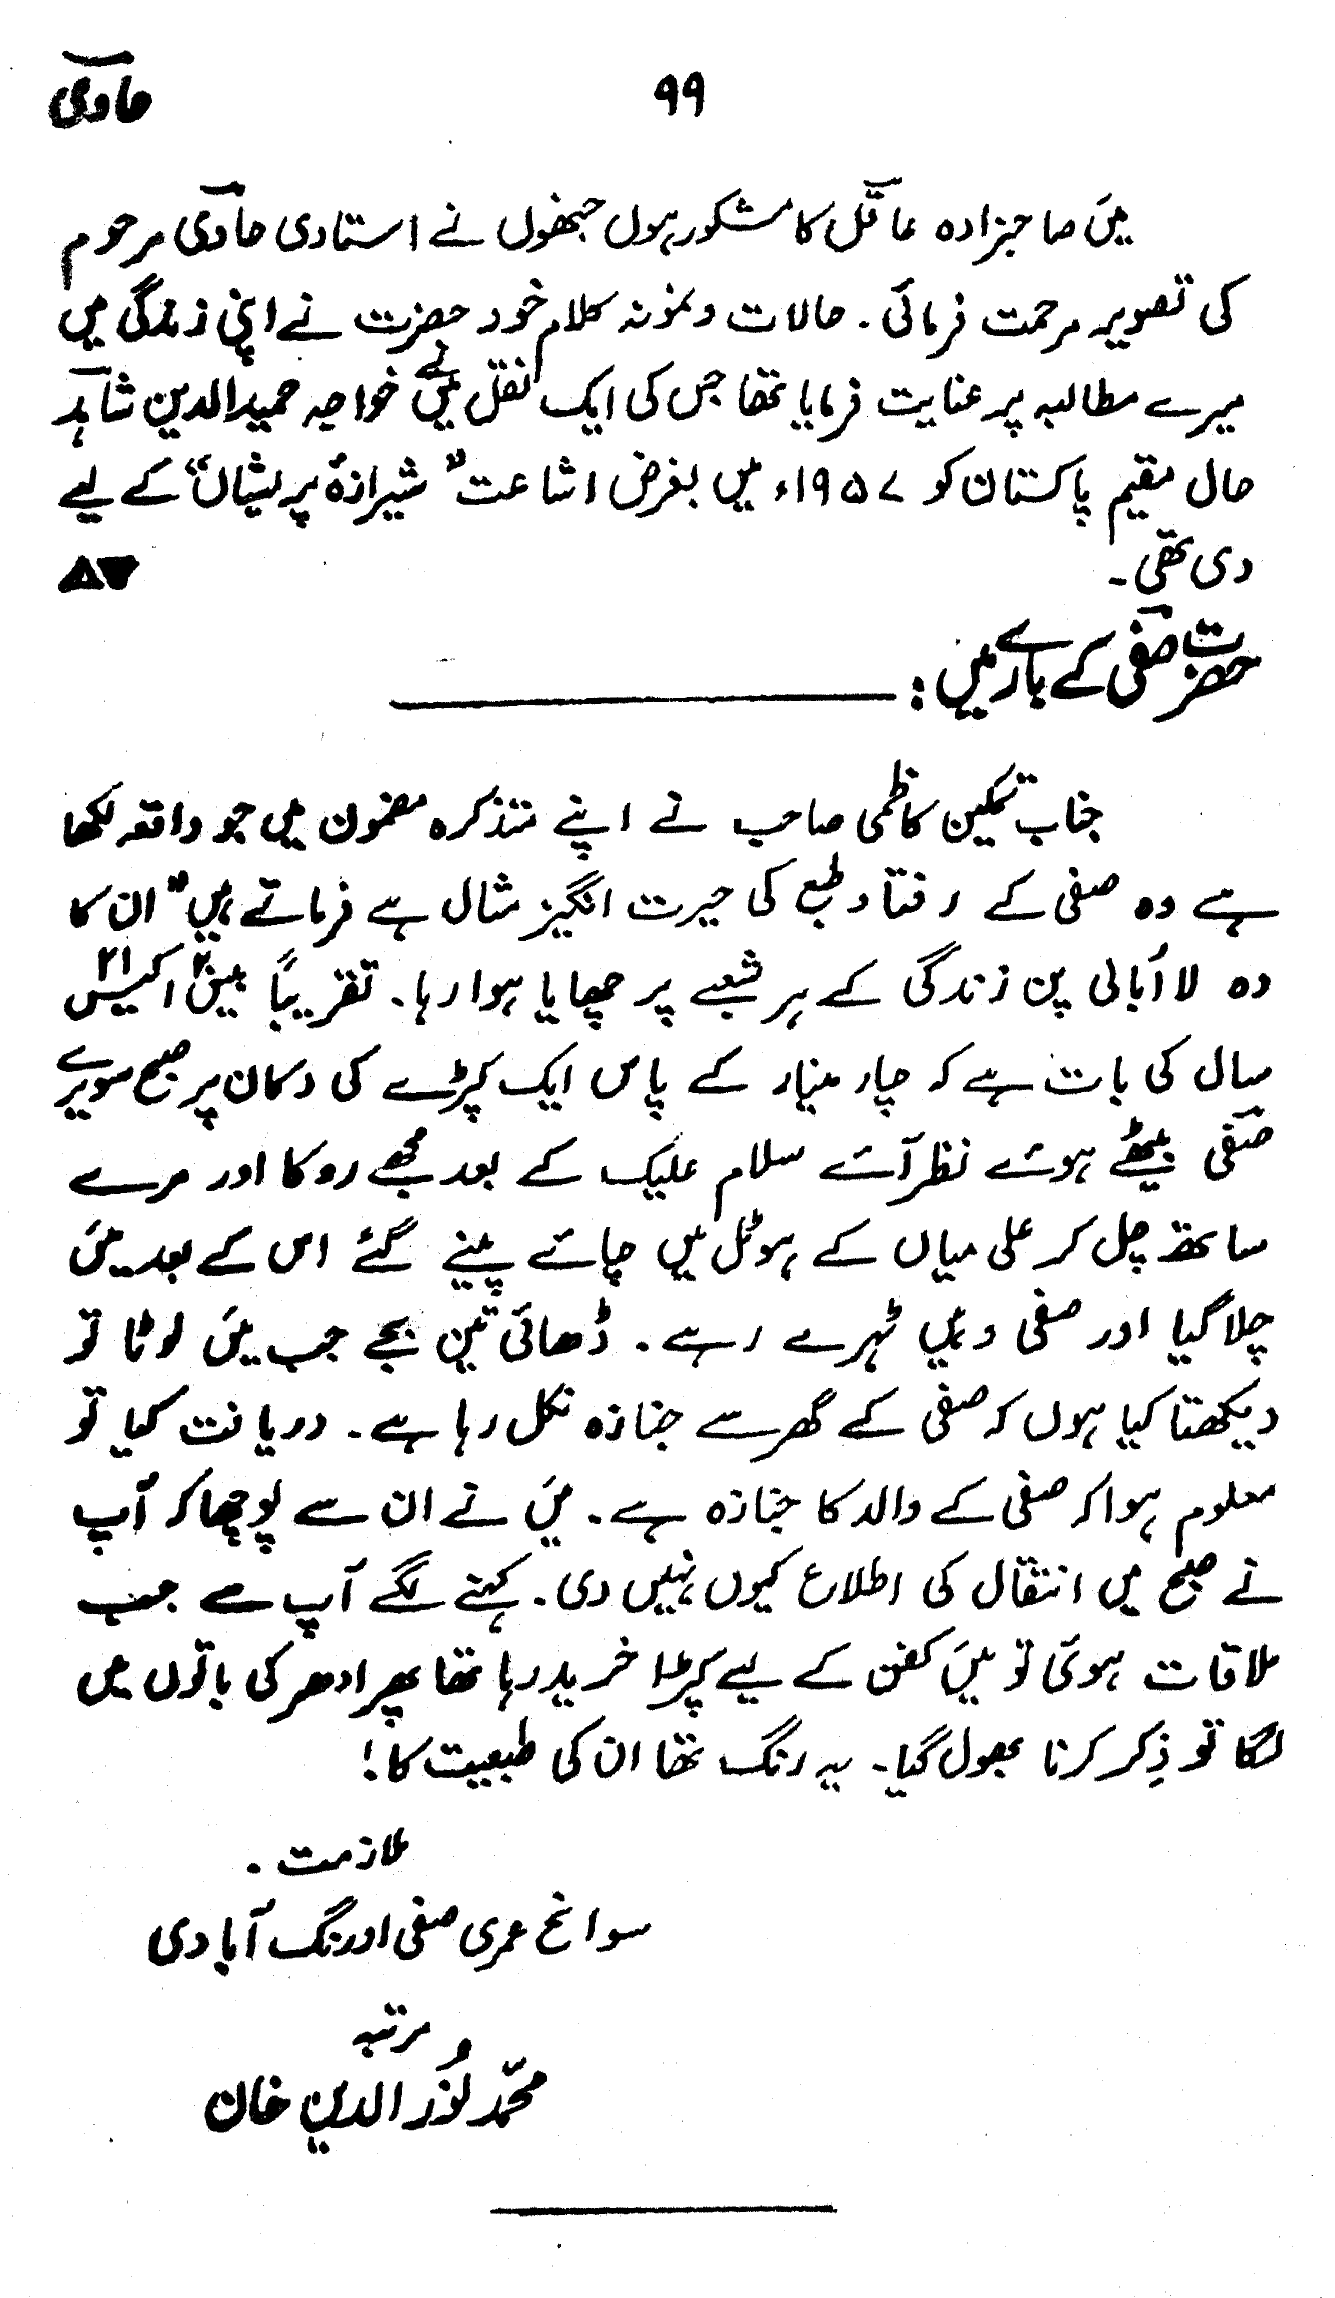 ۹۹
حاوی
میں صاحبزادہ عاقل کا مشکور ہوں جنھوں نے استادی حاوی مرحوم
کی تصویر مرحمت فرمائی۔ حالات و نمونہ کلام خود حضرت نے اپنی زندگی میں
میرے مطالبہ پر عنایت فرمایا تھا جس کی ایک نقل میں نے خواجہ حمیدالدین شاہد
حال مقیم پاکستان کو ۱۹۵۷ء میں بغرض اشاعت "شیرازۂ پریشاں" کے لیے
دی تھی۔
حضرت صفی کے بارے میں :
جناب تمکین کاظمی صاحب نے اپنے متذکرہ مضمون میں جو واقعہ لکھا
ہے وہ صفی کے رفتاد طبع کی حیرت انگیز مثال ہے فرماتے ہیں" ان کا
وہ لا اُبالی پن زندگی کے ہر شعبے پر چھایا ہوا رہا۔ تقریباً بیس۲۰ اکیس۲۱
سال کی بات ہے کہ چار مینار کے پاس ایک کپڑے کی دکان پر صبح سویرے
صفی بیٹھے ہوئے نظر آئے سلام علیک کے بعد مجھے روکا اور مرے
ساتھ چل کر علی میاں کے ہوٹل میں چائے پینے گئے اس کے بعد میں
چلا گیا اور صفی وہیں ٹہرے رہے۔ ڈھائی تین بجے جب میں لوٹا تو
دیکھتا کیا ہوں کہ صفی کے گھر سے جنازہ نکل رہا ہے۔ دریافت کیا تو
معلوم ہوا کہ صفی کے والد کا جنازہ ہے۔ میں نے ان سے پوچھا کہ آپ
نے صبح میں انتقال کی اطلاع کیوں نہیں دی۔ کہنے لگے آپ سے جب
ملاقات ہوئی تو میں کفن کے لیے کپڑا خرید رہا تھا پھر ادھر کی باتوں میں
لگا تو ذِکر کرنا بھول گیا۔ یہ رنگ تھا ان کی طبعیت کا!
ملازمت۔
سوانح عمری صفی اورنگ آبادی
مرتبہ
محمّد نُور الدین خان